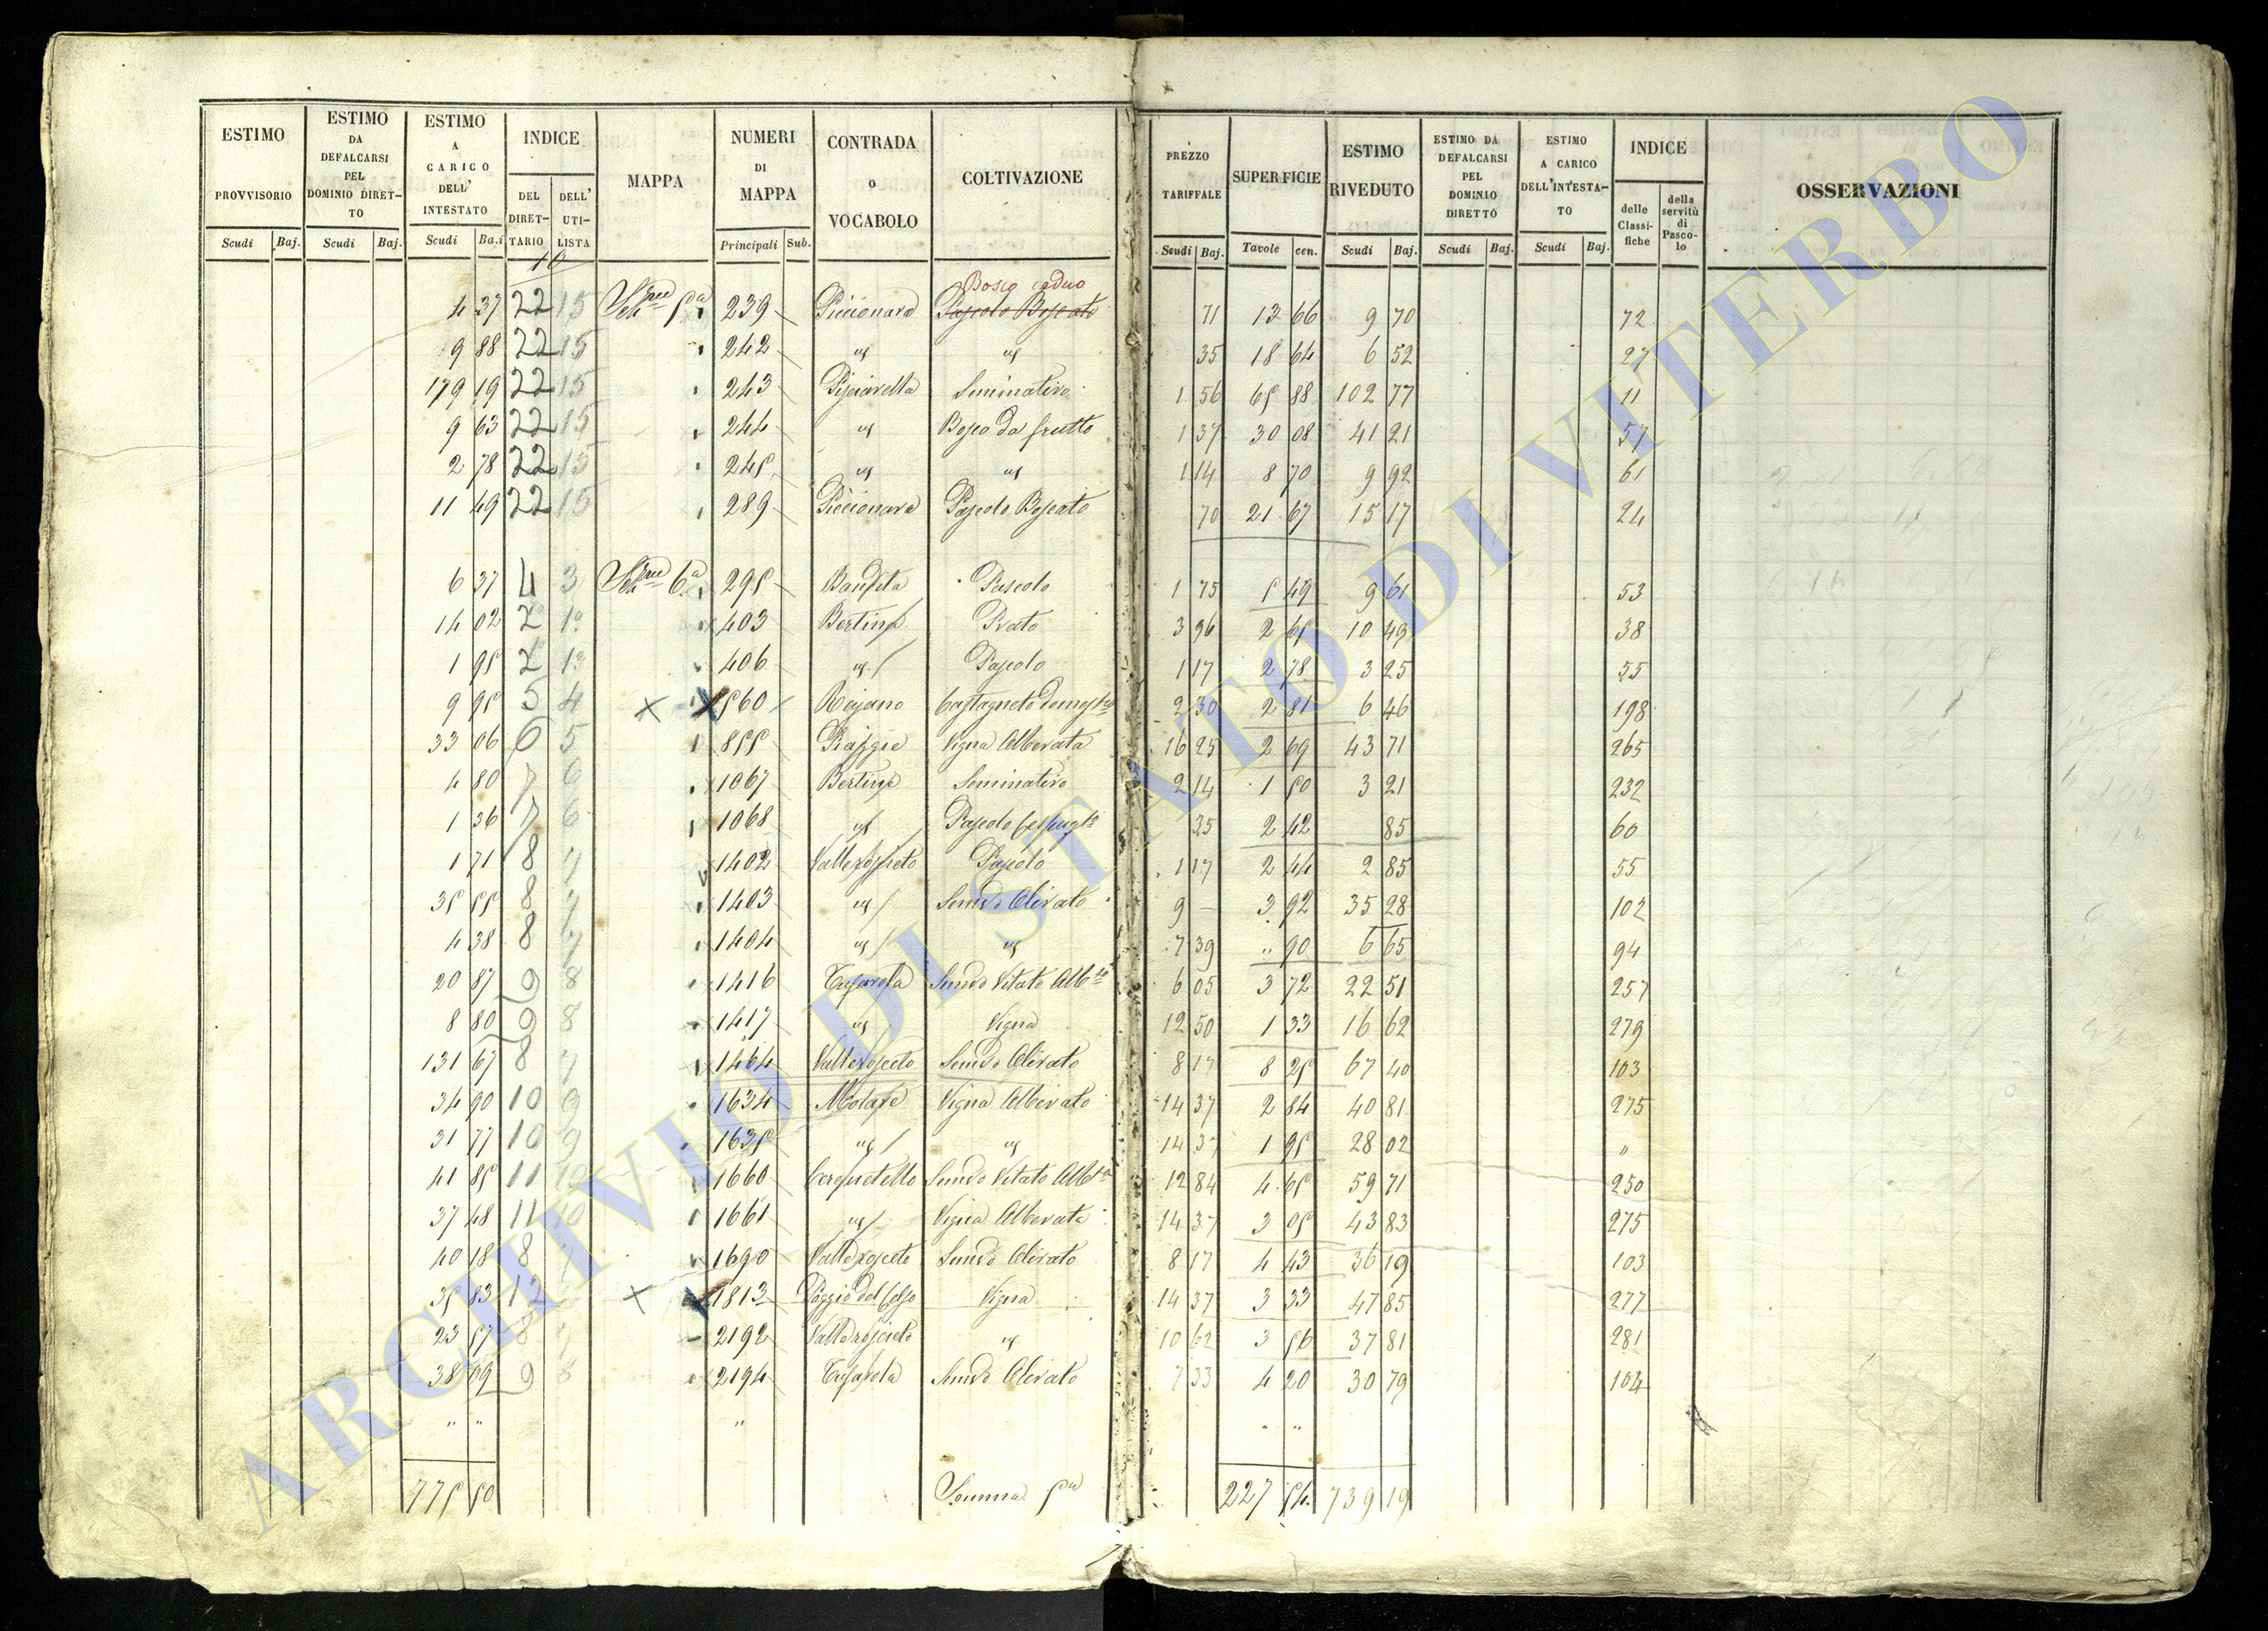 ESTIMO PROVVISORIO Scudi Baj.
ESTIMO DA DEFALCARSI PEL DOMINIO DIRET-TO Scudi Baj.
ESTIMO A CARICO DELL' INTESTATO Scudi Ba.i
INDICE DEL DIRET-TARIO DELL' UTI-LISTA
MAPPA
NUMERI DI MAPPA Principali Sub.
CONTRADA o VOCABOLO
COLTIVAZIONE
PREZZO TARIFFALE Scudi Baj.
SUPERFICIE Tavole cen.
ESTIMO RIVEDUTO Scudi Baj.
ESTIMO DA DEFALCARSI PEL DOMINIO DIRETTO Scudi Baj.
ESTIMO A CARICO DELL'INTESTA-TO Scudi Baj.
INDICE delle Classi-fiche della servitù di Pasco-lo
OSSERVAZIONI
10
Bosco ceduo
4 37 22 15 5a 239 Piccionara Pascolo Boscato 71 13 66 9 70 72
9 88 22 15 242 " " 35 18 64 6 52 27
179 19 22 15 243 Pisciarella Seminativo 1 56 65 88 102 77 11
9 63 22 15 244 " Bosco da frutto 1 37 30 08 41 21 57
2 78 22 15 245 " " 1 14 8 70 9 92 61
11 49 22 15 289 Piccionara Pascolo Boscato 70 21 67 15 17 24
6 37 4 3 6a 295 Bandita Pascolo 1 75 5 49 9 61 53
14 02 2 1 403 Prato 3 96 2 65 10 49 38
1 95 2 406 " Pascolo 1 17 2 78 3 25 55
9 95 5 4 560 Rojano Castagneto 2 30 2 81 6 46 198
33 06 6 5 855 Piagge Vigna Alberata 16 25 2 69 43 71 265
4 80 7 6 1067 Seminativo 2 14 1 50 3 21 232
1 36 7 6 1068 " Pascolo 35 2 42 85 60
1 71 8 7 1402 Pascolo 1 17 2 44 2 85 55
35 55 8 7 1403 " Semvo Olivato 9 – 3 92 35 28 102
4 38 8 7 1404 " " 7 39 " 90 6 65 94
20 87 9 8 1416 Semvo Vitato 6 05 3 72 22 51 257
8 80 9 8 1417 " Vigna 12 50 1 33 16 62 279
131 67 8 7 1464 Semvo Olivato 8 17 8 25 67 40 103
34 90 10 9 1634 Vigna Alberata 14 37 2 84 40 81 275
31 77 10 9 1635 " " 14 37 1 95 28 02 "
41 85 11 10 1660 Cerquetello Semvo Vitato 12 84 4 65 59 71 250
37 48 11 10 1661 " Vigna Alberata 14 37 3 05 43 83 275
40 18 8 7 1690 Semvo Olivato 8 17 4 43 36 19 103
35 83 12 1813 Poggio del Gelso Vigna 14 37 3 33 47 85 277
23 57 8 7 2192 " 10 62 3 56 37 81 281
38 09 9 8 2194 Semvo Olivato 7 33 4 20 30 79 104
" " " " "
775 50 Somma 5a 227 54 739 19
ARCHIVIO DI STATO DI VITERBO